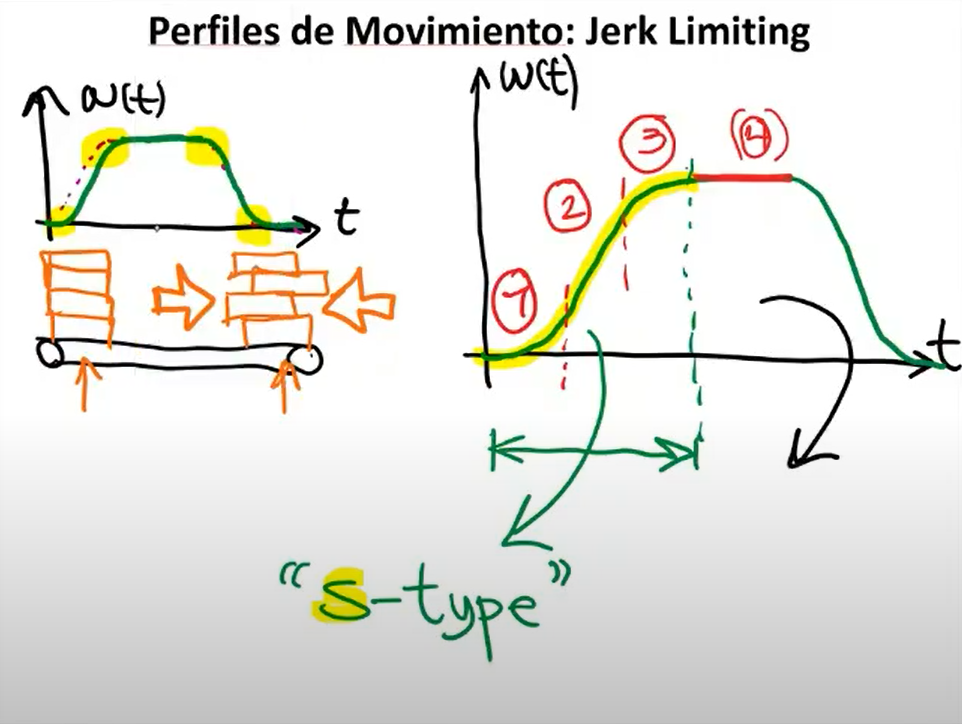 Perfiles de Movimiento: Jerk Limiting
ω(t)
t
ω(t)
1
2
3
(4)
t
"S-type"